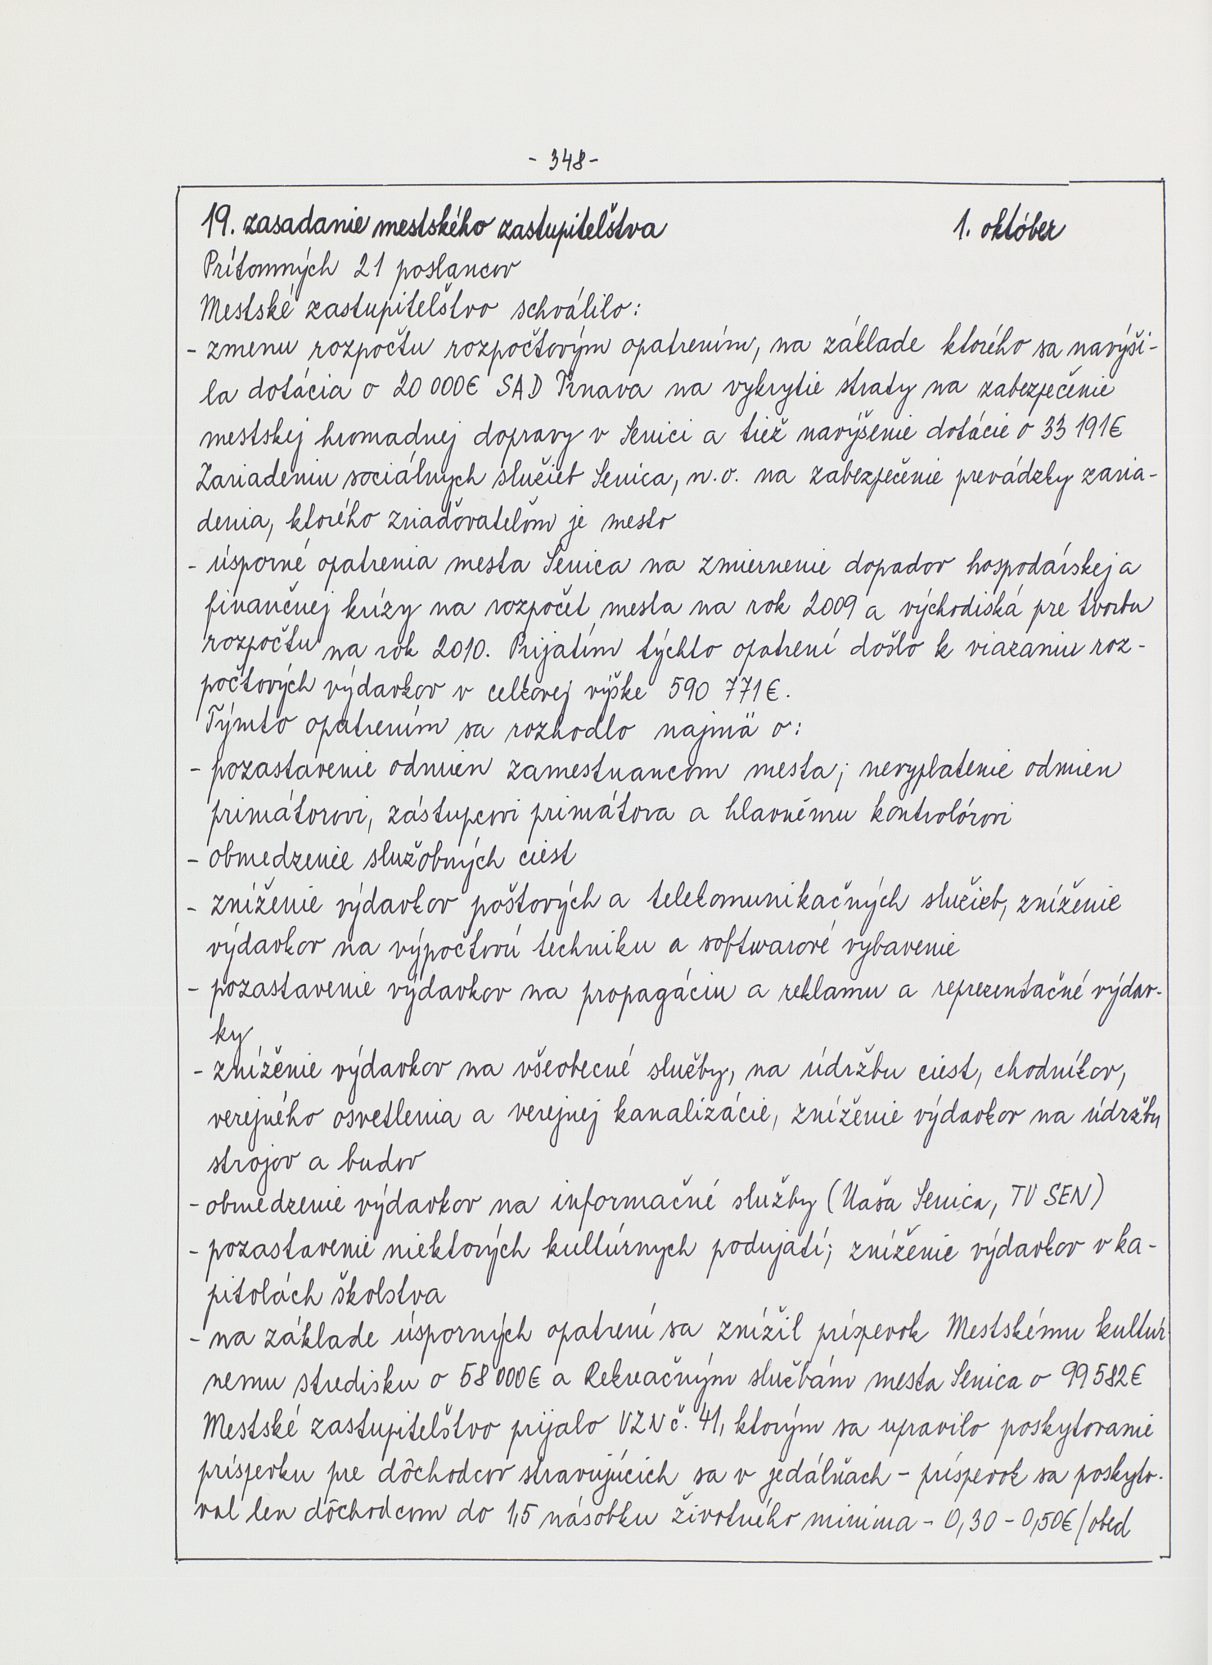 - 348 -
19. zasadanie mestského zastupiteľstva 1. október
Prítomných 21 poslancov
Mestské zastupiteľstvo schválilo:
- zmenu rozpočtu rozpočtovým opatrením, na základe ktorého sa navýši-
la dotácia o 20 000€ SAD Trnava na vykrytie straty na zabezpečenie
mestskej hromadnej dopravy v Senici a tiež navýšenie dotácie o 33 191€
Zariadeniu sociálnych služieb Senica, n.o. na zabezpečenie prevádzky zaria-
denia, ktorého zriaďovateľom je mesto
- úsporné opatrenia mesta Senica na zmiernenie dopadov hospodárskej a
finančnej krízy na rozpočet mesta na rok 2009 a východiská pre tvorbu
rozpočtu na rok 2010. Prijatím týchto opatrení došlo k viazaniu roz-
počtových výdavkov v celkovej výške 590 771€.
Týmto opatrením sa rozhodlo najmä o:
- pozastavenie odmien zamestnancom mesta; nevyplatenie odmien
primátorovi, zástupcovi primátora a hlavnému kontrolórovi
- obmedzenie služobných ciest
- zníženie výdavkov poštových a telekomunikačných služieb, zníženie
výdavkov na výpočtovú techniku a softwarové vybavenie
- pozastavenie výdavkov na propagáciu a reklamu a reprezentačné výdav-
ky
- zníženie výdavkov na všeobecné služby, na údržbu ciest, chodníkov,
verejného osvetlenia a verejnej kanalizácie, zníženie výdavkov na údržbu
strojov a budov
- obmedzenie výdavkov na informačné služby (Naša Senica, TV SEN)
- pozastavenie niektorých kultúrnych podujatí; zníženie výdavkov v ka-
pitolách školstva
- na základe úsporných opatrení sa znížil príspevok Mestskému kultúr
nemu stredisku o 58 000€ a Rekreačným službám mesta Senica o 99 582€
Mestské zastupiteľstvo prijalo VZN č. 41, ktorým sa upravilo poskytovanie
príspevku pre dôchodcov stravujúcich sa v jedálňach - príspevok sa poskyto-
val len dôchodcom do 1,5 násobku životného minima - 0,30 - 0,50€/obed